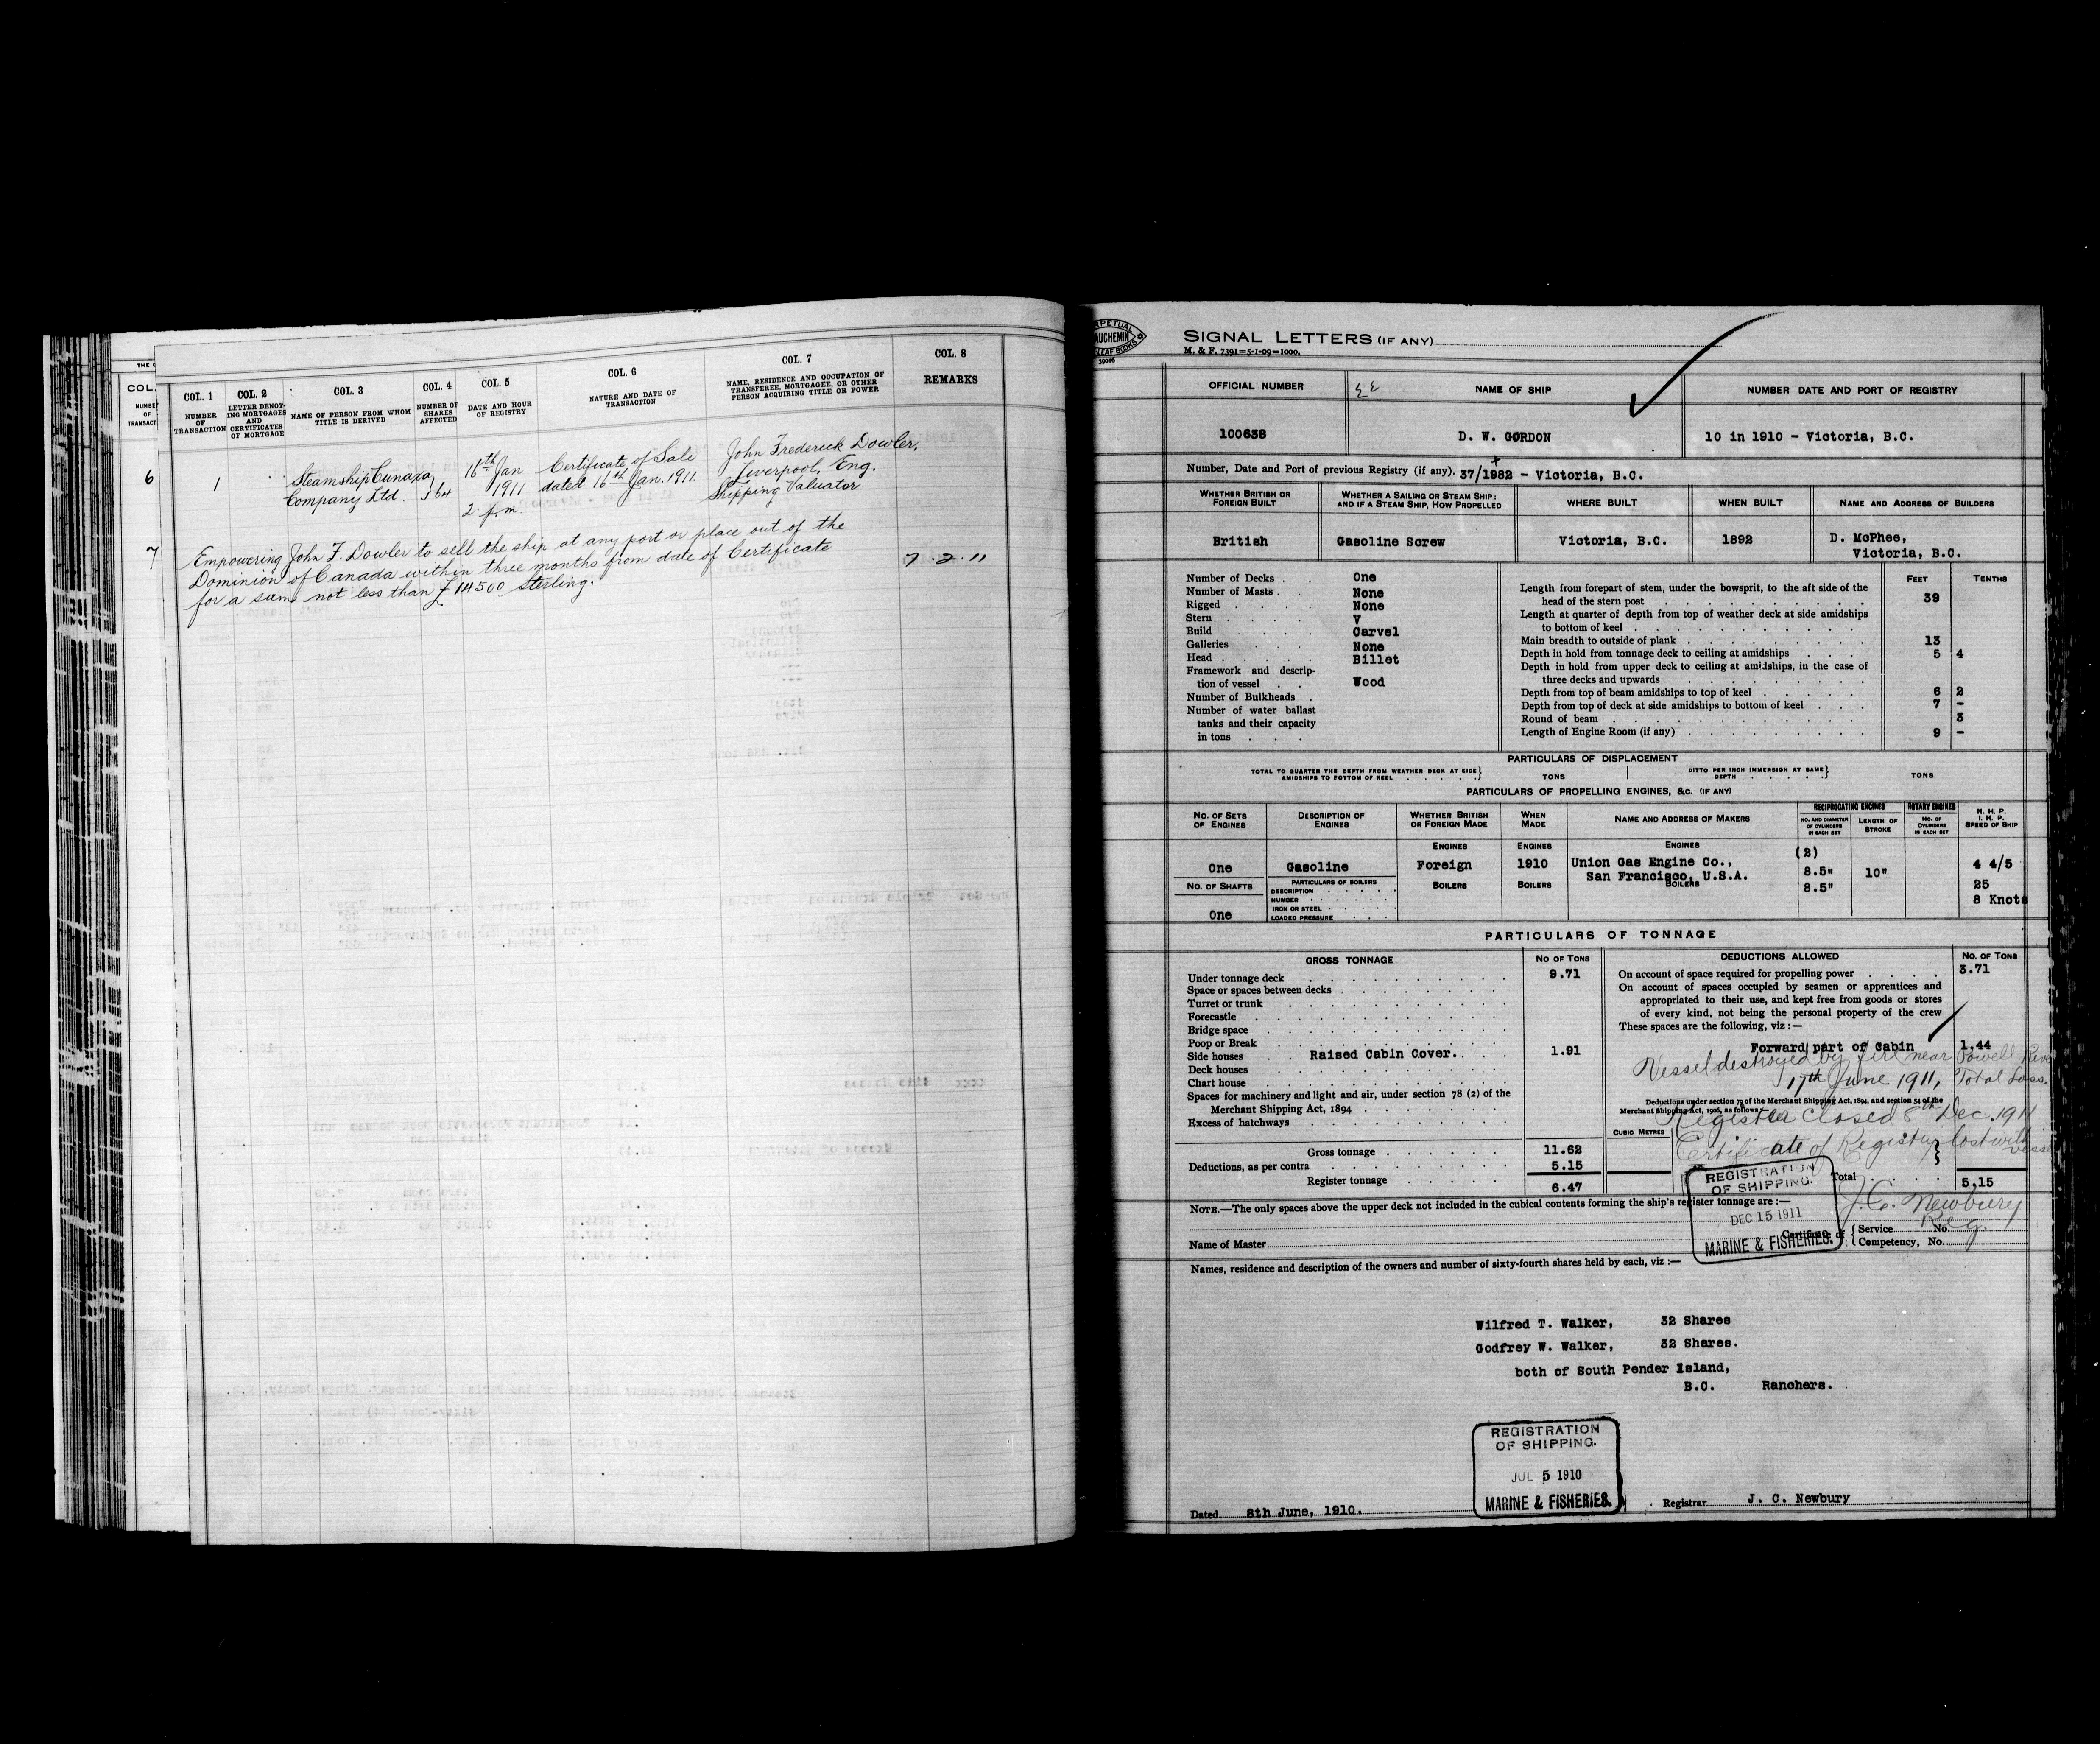 THE
COL.
NUMBER
OF
TRANSACT
6
7
COL. 1
COL. 2
COL. 3
COL. 4
COL. 5
COL. 6
COL. 7
COL. 8
NUMBER OF TRANSACTION
LETTER DENOTING MORTGAGES AND CERTIFICATES OF MORTGAGE
NAME OF PERSON FROM WHOM TITLE IS DERIVED
NUMBER OF SHARES AFFECTED
DATE AND HOUR OF REGISTRY
NATURE AND DATE OF TRANSACTION
NAME, RESIDENCE AND OCCUPATION OF TRANSFEREE, MORTGAGEE, OR OTHER PERSON ACQUIRING TITLE OR POWER
REMARKS
1
Steamship Cunaxa Company Ltd.
64
16th Jan 1911 2 p.m.
Certificate of Sale dated 16th Jan. 1911
John Frederick Dowler, Liverpool, Eng. Shipping Valuator
Empowering John F. Dowler to sell the ship at any port or place out of the
Dominion of Canada within three months from date of Certificate
for a sum not less than £14500 sterling.
7.2.11
PERPETUAL
BEAUCHEMIN
LEAF BOOKS
39026
SIGNAL LETTERS (IF ANY)
M. & F. 7391=5-1-09=1000.
OFFICIAL NUMBER
NAME OF SHIP
NUMBER DATE AND PORT OF REGISTRY
100638
D. W. GORDON
10 in 1910 - Victoria, B.C.
Number, Date and Port of previous Registry (if any). 37/1982 - Victoria, B.C.
WHETHER BRITISH OR FOREIGN BUILT
WHETHER A SAILING OR STEAM SHIP: AND IF A STEAM SHIP, HOW PROPELLED
WHERE BUILT
WHEN BUILT
NAME AND ADDRESS OF BUILDERS
British
Gasoline Screw
Victoria, B.C.
1892
D. McPhee,
Victoria, B.C.
Number of Decks . One
Number of Masts . . None
Rigged . . . None
Stern . . . . V
Build . . . . Carvel
Galleries . . . None
Head . . . . . Billet
Framework and description of vessel . . Wood
Number of Bulkheads .
Number of water ballast
tanks and their capacity
in tons . . .
FEET
TENTHS
Length from forepart of stem, under the bowsprit, to the aft side of the
head of the stern post 39
Length at quarter of depth from top of weather deck at side amidships
to bottom of keel
Main breadth to outside of plank 13
Depth in hold from tonnage deck to ceiling at amidships 5 4
Depth in hold from upper deck to ceiling at amidships, in the case of
three decks and upwards
Depth from top of beam amidships to top of keel 6 2
Depth from top of deck at side amidships to bottom of keel 7 -
Round of beam 3
Length of Engine Room (if any) 9 -
PARTICULARS OF DISPLACEMENT
TOTAL TO QUARTER THE DEPTH FROM WEATHER DECK AT SIDE AMIDSHIPS TO BOTTOM OF KEEL
TONS
DITTO PER INCH IMMERSION AT SAME DEPTH
TONS
PARTICULARS OF PROPELLING ENGINES, &C. (IF ANY)
NO. OF SETS OF ENGINES
DESCRIPTION OF ENGINES
WHETHER BRITISH OR FOREIGN MADE
WHEN MADE
NAME AND ADDRESS OF MAKERS
RECIPROCATING ENGINES
NO. AND DIAMETER OF CYLINDERS IN EACH SET
LENGTH OF STROKE
ROTARY ENGINES
NO. OF CYLINDERS IN EACH SET
N. H. P.
I. H. P.
SPEED OF SHIP
ENGINES
ENGINES
ENGINES
One
Gasoline
Foreign
1910
Union Gas Engine Co.,
San Francisco, U.S.A.
(2)
8.5"
8.5"
10"
4 4/5
25
8 Knots
NO. OF SHAFTS
One
PARTICULARS OF BOILERS
DESCRIPTION
NUMBER
IRON OR STEEL
LOADED PRESSURE
BOILERS
BOILERS
BOILERS
PARTICULARS OF TONNAGE
GROSS TONNAGE
NO OF TONS
Under tonnage deck 9.71
Space or spaces between decks
Turret or trunk
Forecastle
Bridge space
Poop or Break
Side houses Raised Cabin Cover. 1.91
Deck houses
Chart house
Spaces for machinery and light and air, under section 78 (2) of the
Merchant Shipping Act, 1894
Excess of hatchways
Gross tonnage 11.62
Deductions, as per contra 5.15
Register tonnage 6.47
DEDUCTIONS ALLOWED
NO. OF TONS
On account of space required for propelling power 3.71
On account of spaces occupied by seamen or apprentices and
appropriated to their use, and kept free from goods or stores
of every kind, not being the personal property of the crew
These spaces are the following, viz :—
Forward part of Cabin 1.44
Vessel destroyed by fire near Powell River
17th June 1911, Total Loss.
Deductions under section 79 of the Merchant Shipping Act, 1894, and section 54 of the
Merchant Shipping Act, 1906, as follows:—
CUBIC METRES
Register Closed 8th Dec. 1911
Certificate of Registry lost with vessel
Total 5.15
J. C. Newbury
Reg.
REGISTRATION
OF SHIPPING.
DEC 15 1911
MARINE & FISHERIES.
NOTE.—The only spaces above the upper deck not included in the cubical contents forming the ship's register tonnage are :—
Name of Master
Certificate of
Service No.
Competency, No.
Names, residence and description of the owners and number of sixty-fourth shares held by each, viz :—
Wilfred T. Walker, 32 Shares
Godfrey W. Walker, 32 Shares.
both of South Pender Island,
B.C. Ranchers.
REGISTRATION
OF SHIPPING.
JUL 5 1910
MARINE & FISHERIES.
Dated 8th June, 1910.
Registrar J. C. Newbury